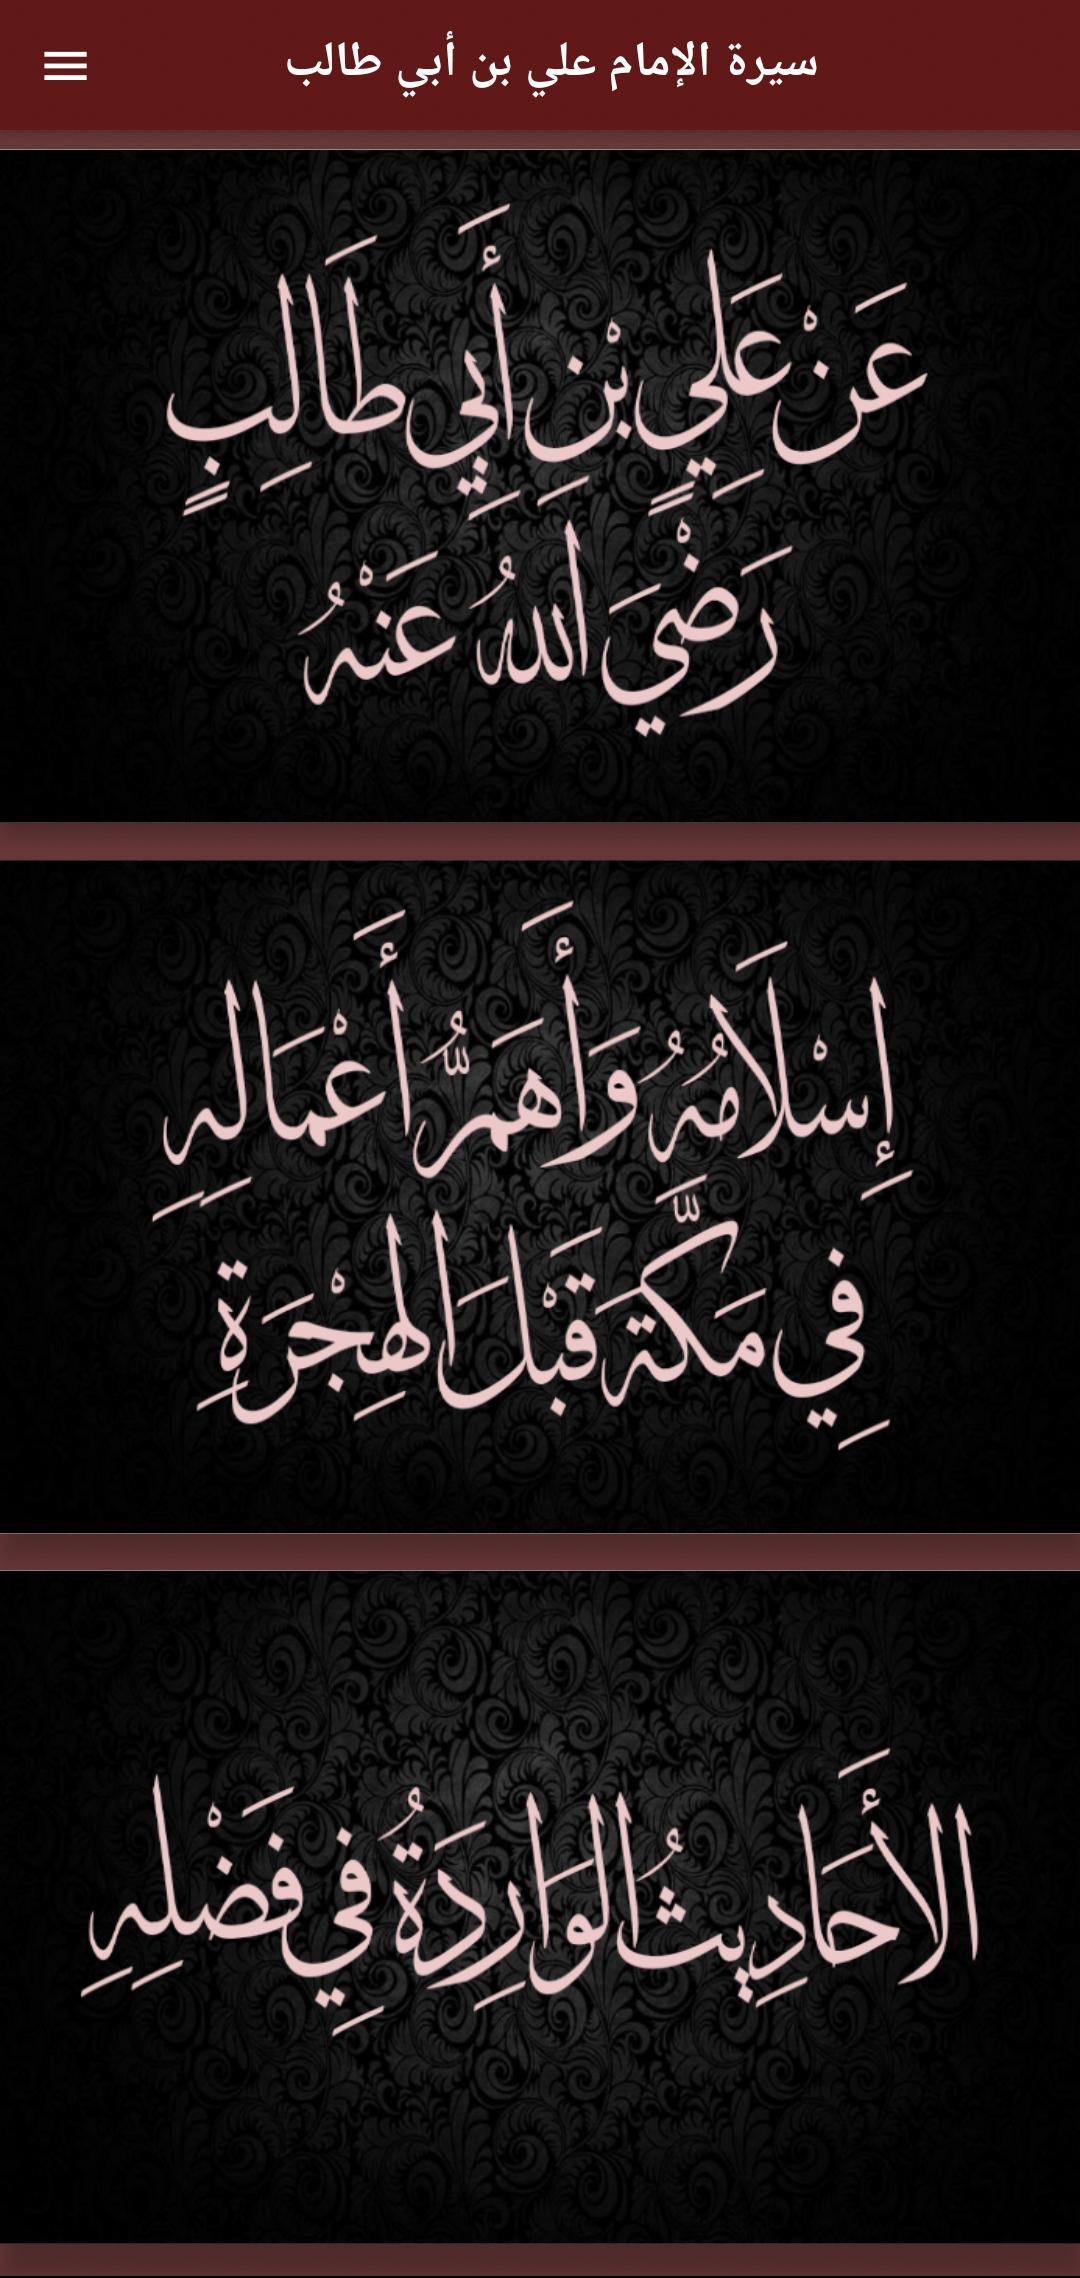 سيرة الإمام علي بن أبي طالب
عَنْ عَلِيٍ بْنِ أَبِي طَالِبٍ
رَضْيَ اللهُ عَنْهُ
إِسْلَامُهُ وَأَهَمُّ أَعْمَالِهِ
فِي مَكَّةَ قَبْلَ الهِجْرَةِ
الأَحَادِيثُ الوَارِدَةُ فِي فَضْلِهِ